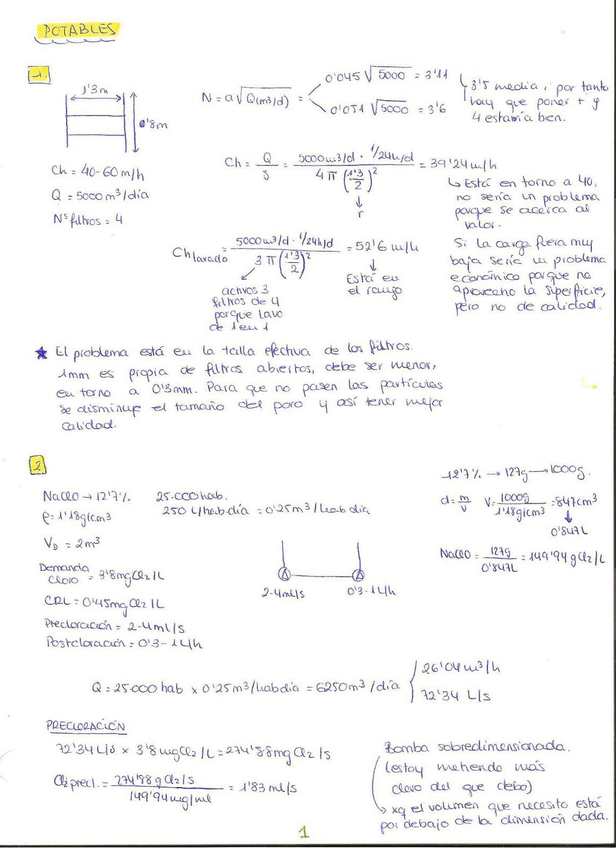 POTABLES
1.
1'3m
0'8m
Ch = 40-60 m/h
Q = 5000 m³/día
Nº filtros = 4
N = a√Q(m³/d)
0'045 √5000 = 3'11
0'051 √5000 = 3'6
3'5 media, por tanto
hay que poner + y
4 estaría bien.
Ch = Q/S = 5000 m³/d · 1/24 h/d / 4 π (1'3/2)² = 39'24 m/h
r
Está en torno a 40,
no sería un problema
porque se acerca al
valor.
Ch lavado = 5000 m³/d · 1/24 h/d / 3 π (1'3/2)² = 52'6 m/h
activos 3
filtros de 4
porque lavo
de 1 en 1
Está en
el rango
Si la carga fuera muy
baja sería un problema
económico porque no
aprovecho la superficie,
pero no de calidad.
★ El problema está en la talla efectiva de los filtros.
1mm es propia de filtros abiertos, debe ser menor,
en torno a 0'3mm. Para que no pasen las partículas
se disminuye el tamaño del poro y así tener mejor
calidad.
2
NaClO → 12'7%
25.000 hab.
ρ = 1'18 g/cm³
250 L/hab día = 0'25 m³/hab día
V_D = 2m³
Demanda cloro = 3'8 mg Cl₂/L
CRL = 0'45 mg Cl₂/L
Precloración = 2-4 ml/s
Postcloración = 0'3-1 L/h
2-4 ml/s
0'3-1 L/h
12'7% → 127g → 1000g.
d = m/v V = 1000g / 1'18 g/cm³ = 847 cm³
0'847L
NaClO = 127g / 0'847L = 149'94 g Cl₂/L
Q = 25000 hab x 0'25 m³/hab día = 6250 m³/día
26'04 m³/h
72'34 L/s
PRECLORACIÓN
72'34 L/s x 3'8 mg Cl₂/L = 274'88 mg Cl₂/s
Cl₂ precl. = 274'88 g Cl₂/s / 149'94 mg/ml = 1'83 ml/s
Bomba sobredimensionada.
(estoy metiendo más
cloro del que debo)
xq el volumen que necesito está
por debajo de la dimensión dada.
1